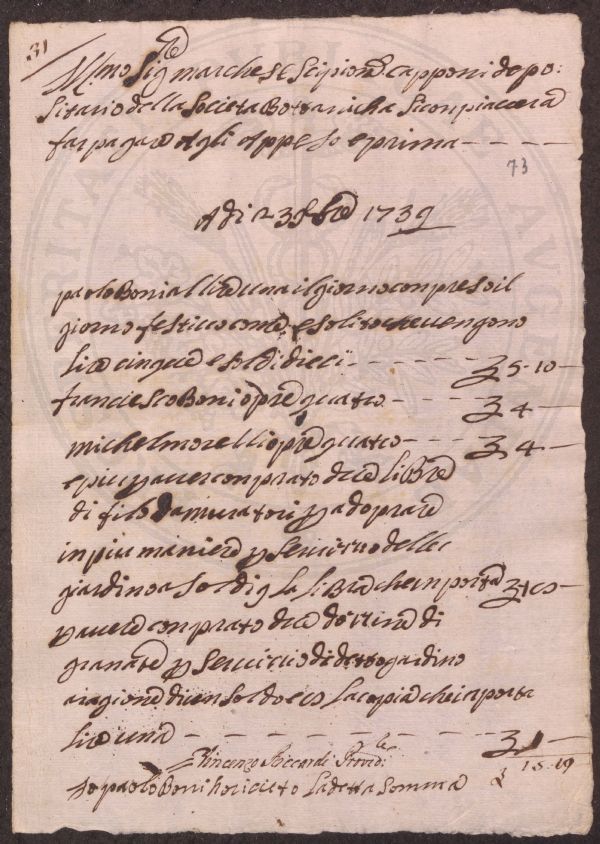 31
Ill.mo Sig.re marchese Scipione Capponi depo:
sitario della Societa Bottanicha Si conpiacera
far pagare Agli Appreso e prima
73
Adi 23 8bre 1739
paolo Boni a lire una il giorno conpreso il
giorno festivo come e solito che vengono
lire cinque e soldi dieci 5-10
franciesco Boni opre quatro 4
michel morelli opre quatro 4
e piu p avere conprato dua libre
di filo da muratori p adoprare
in piu maniere p Servitio delle
giardino a Soldi la libra che inporta
p avere conprato dua dozine di
granate p Servitio di detto gardino
a ragione di un Soldo la copia che inporta
lire una 1
Vincenzo
15-19
Io paolo Boni ho ricieuto La detta Somma